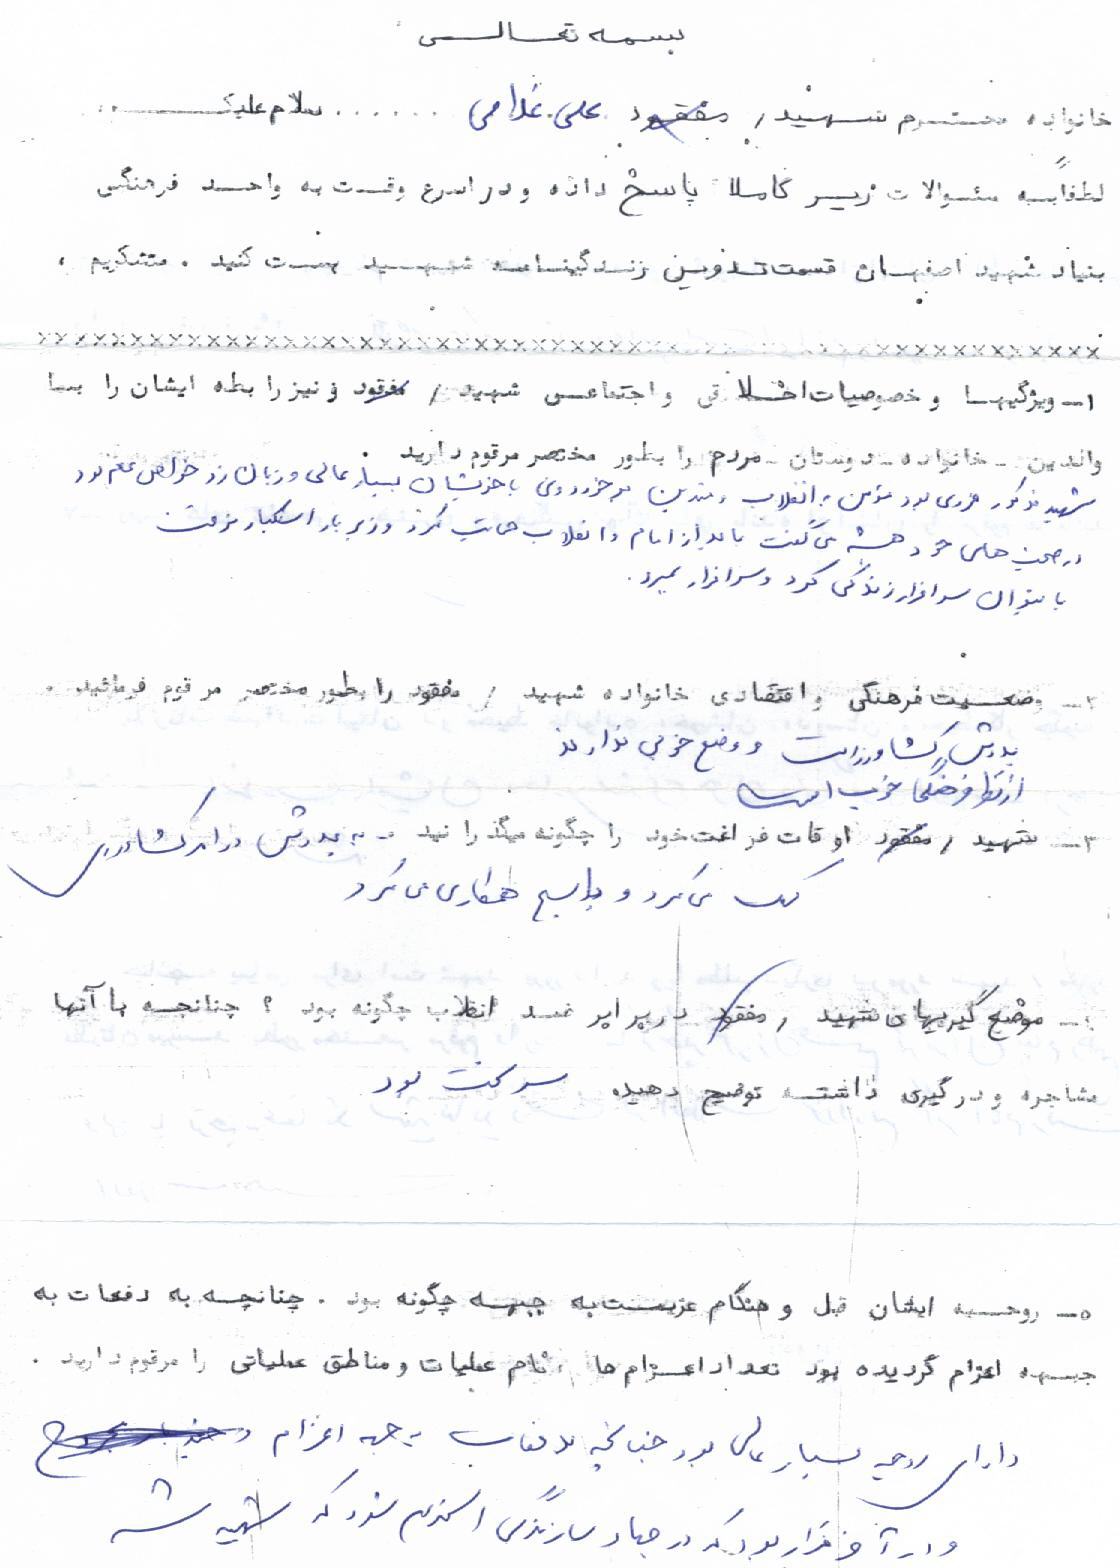 بسمه تعالی
خانواده محترم شهید / مفقود علی غلامی ...... سلام علیکم
لطفاً به سئوالات زیر کاملا پاسخ داده و در اسرع وقت به واحد فرهنگی
بنیاد شهید اصفهان قسمت تدوین زندگینامه شهید پست کنید . متشکریم .
××××××××××××××××××××××××××××××××××××××××××××××××××××××
۱- ویژگیها و خصوصیات اخلاقی و اجتماعی شهید / مفقود و نیز رابطه ایشان را با
والدین - خانواده - دوستان - مردم را بطور مختصر مرقوم دارید .
شهید مذکور فردی بود مؤمن به انقلاب و متدین برخوردی با خویشان بسیار عالی و زبان زد خواص بود
در صحبت های خود همیشه می گفت باید از امام و انقلاب حمایت کرد و زیر بار استکبار نرفت
تا بتوان سرافراز زندگی کرد و سرافراز بمیرد .
۲- وضعیت فرهنگی و اقتصادی خانواده شهید / مفقود را بطور مختصر مرقوم فرمائید .
پدرش کشاورز است و وضع خوبی ندارند
از نظر فرهنگی خوب است
۳- شهید / مفقود اوقات فراغت خود را چگونه میگذرانید - به پدرش در امر کشاورزی
کمک می کرد و با بسیج همکاری می کرد
۴- موضع گیریهای شهید / مفقود در برابر ضد انقلاب چگونه بود ؟ چنانچه با آنها
مشاجره و درگیری داشته توضیح دهید. سرسخت بود
۵- روحیه ایشان قبل و هنگام عزیمت به جبهه چگونه بود . چنانچه به دفعات به
جبهه اعزام گردیده بود تعداد اعزام ها ، نام عملیات و مناطق عملیاتی را مرقوم دارید .
دارای روحیه بسیار عالی بود چنانچه به دفعات به جبهه اعزام
و در آخر قرار بود که در جهاد سازندگی استخدام شود که شهید شد